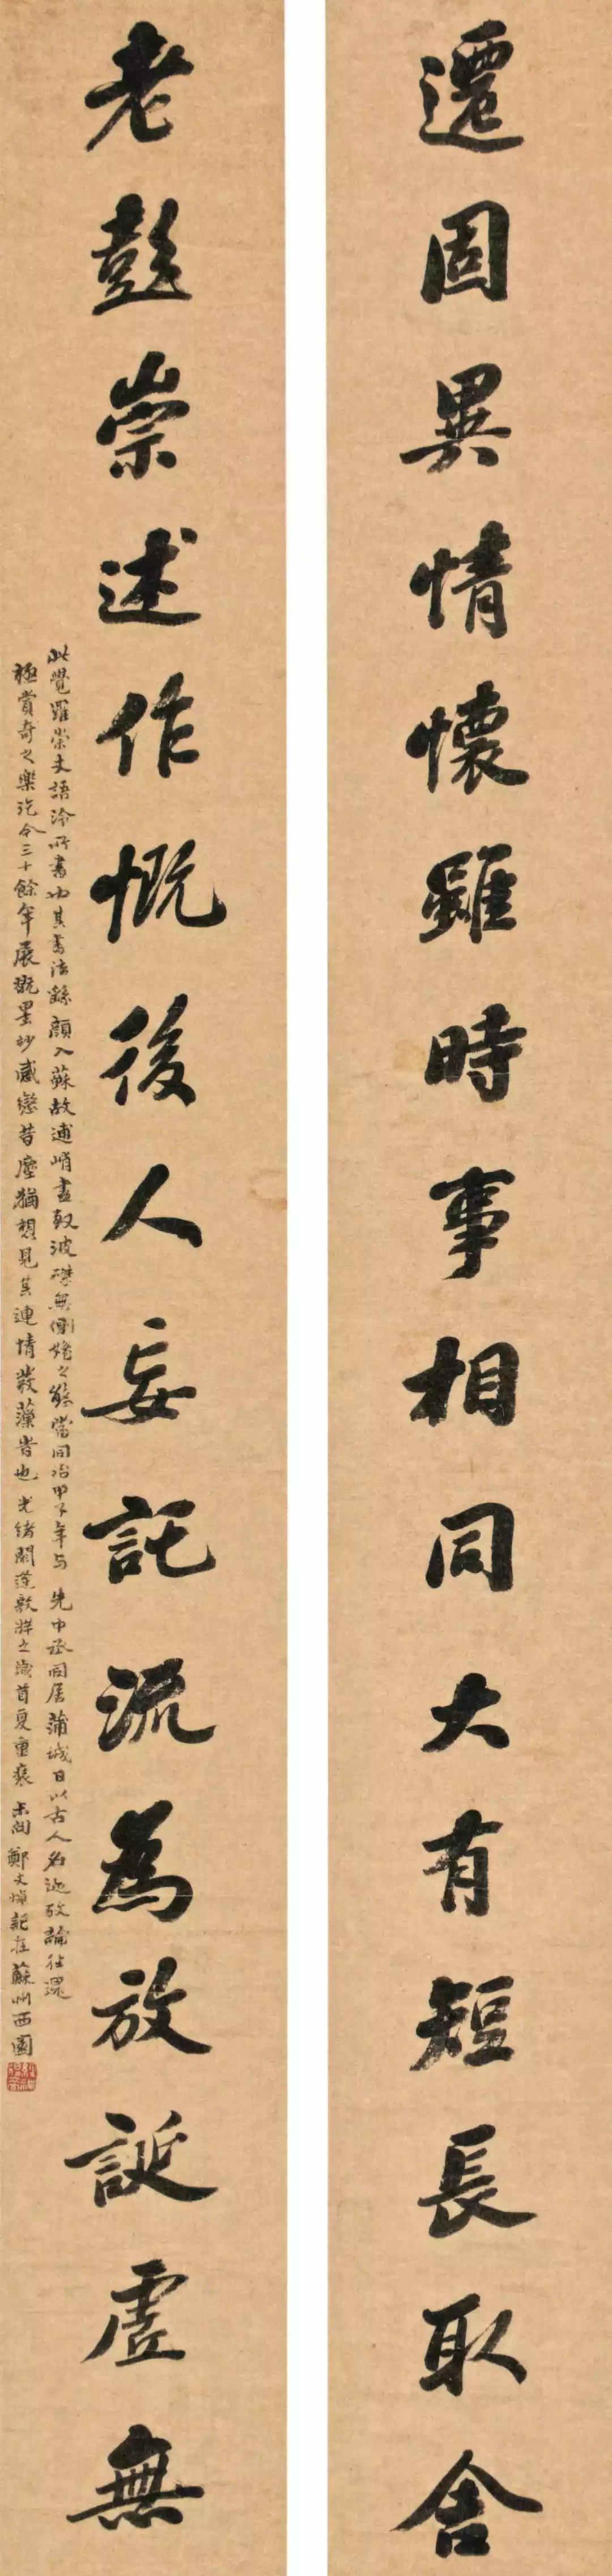 遷固異情懷雖時事相同大有短長取舍
老彭崇述作慨後人妄託流為放誕虛無
此覺羅崇文語泠所書也其書法繇顏入蘇故逋峭盡致波磔無側媚之態當同治甲子年与先中丞同居蒲城日以古人名迹攷論往還
極賞奇之樂迄今三十餘年展翫墨妙感戀昔塵猶想見其連情發藻皆也光緒閼逢敦牂之歲首夏重裝未問鄭文焯記在蘇州西園